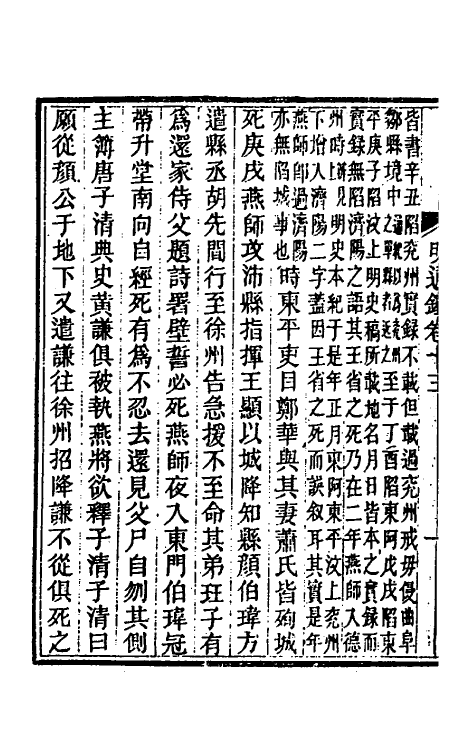 明通鑑卷十三
皆書辛丑陷兖州實録不載但載過兖州戒毋侵曲阜
鄒縣境中之至于丁酉陷東阿戊戌陷東
平庚子陷汶上明史稿所載地名月日皆本之實録而
實録無陷濟陽之語其王省之死乃在二年燕師入德
州時詳見明史本紀于是年正月東阿東平汶上兖州
下增入濟陽二字蓋因王省之死而誤叙耳其實是年
燕師即過濟陽
亦無陷城事也時東平吏目鄭華與其妻蕭氏皆殉城
死庚戌燕師攻沛縣指揮王顯以城降知縣顔伯瑋方
遣縣丞胡先間行至徐州告急援不至命其弟珏子有
爲還家侍父題詩署壁誓必死燕師夜入東門伯瑋冠
帶升堂南向自經死有爲不忍去還見父尸自刎其側
主簿唐子清典史黃謙俱被執燕將欲釋子清子清曰
願從顔公于地下又遣謙往徐州招降謙不從俱死之